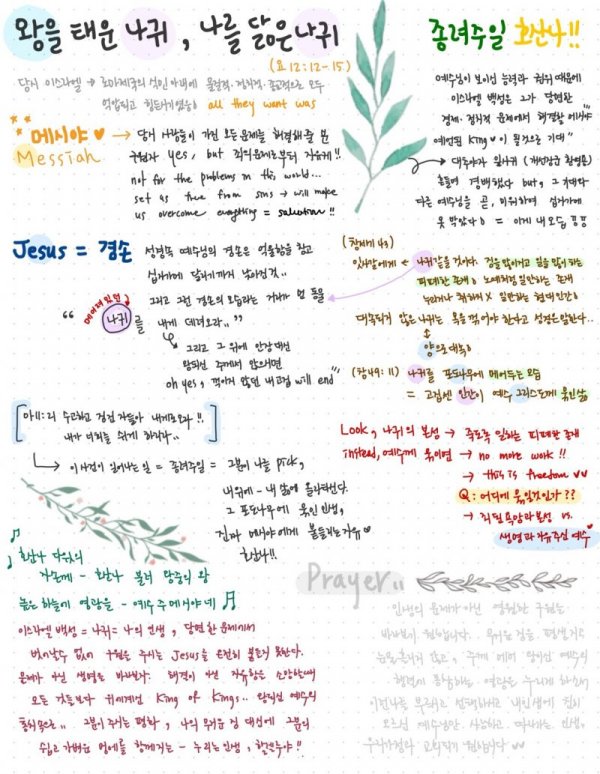 왕을 태운 나귀, 나를 닮은 나귀
(요 12:12-15)
당시 이스라엘 → 로마제국의 식민 아래에 물질적·정치적·종교적으로 모두
억압되고 힘든시기였음 all they want was
메시야 ♥
Messiah
→ 당시 사람들이 가진 모든 문제를 해결해 줄 분
구원자 yes, but 죄의 문제로부터 자유케!!
not for the problems in this world...
set as free from sins → will make
us overcome everything = salvation!!
종려주일 호산나!!
예수님이 보이신 능력과 권위 때문에
이스라엘 백성은 그가 당면한
경제·정치적 문제에서 해결할 메시야
예언된 King ♥ 이 될것으로 기대"
→ 대중이자 일시귀
흔들며 경배했다 but, 그 기대와
다른 예수님을 곧, 미워하며 십자가에
못 박았다 = 이게 내 모습, 끙끙
Jesus = 겸손
성경속 예수님의 겸손은 억울함을 참고
십자가에 달리기까지 낮아진것..
그리고 그런 겸손의 모습과는 거리가 먼 돌을
" 매여져있던 나귀를 내게 데려오라.."
→ 그리고 그 위에 안장 대신
왕되신 주께서 앉으시면
oh yes, 꺾이지 않던 내 고집 will end"
(창세기 43)
있사갈에게 ← 나귀같을 것이다. 짐을 많이지고 일을 많이 하는
피폐한 존재 노예처럼 일만하는 존재
누리거나 취하며 X 일만하는 현대인간
대속되지 않은 나귀는 목을 꺾어야 한다고 성경은 말한다..
↕
양으로 대속
(창49:11) 나귀를 포도나무에 매어두는 모습
= 고집센 인간이 예수 그리스도께 묶인 삶
[마11: 수고하고 짐진 자들아 내게로 오라!!
내가 너희를 쉬게 하리라..]
→ 이 사건이 일어나는 일 = 종려주일 = 그분이 나를 pick,
내위에 - 내 삶에 올라타신다.
그 포도나무에 묶인 인생,
진짜 메시야에게 붙들리는 자유
호산나!!
Look, 나귀의 본성 → 죽도록 일하는 피폐한 존재
instead, 예수께 묶이면 → no more work!!
→ this is freedom ♥♥
Q: 어디에 묶일것인가??
→ 죄된 욕망과 본성 vs.
생명과 자유주신 예수♥
♪ 호산나 다윗의
자손께 - 호산나 불러 왕중의 왕
높은 하늘에 영광을 - 예수 주 메시야네 ♬
이스라엘 백성 = 나귀 = 나의 인생, 당면한 문제에서
벗어날수 없이 구원을 주시는 Jesus를 온전히 붙들지 못한다.
문제가 아닌 생명을 바라보자. 해결이 아닌 자유함을 소망하며
모든 것들보다 귀에계신 King of Kings.. 왕되신 예수의
통치로.. 그분이 주시는 평화, 나의 무거운 짐 대신에 그분의
쉽고 가벼운 멍에를 함께지는 - 누리는 인생, 할렐루야!!
Prayer,,
인생의 문제가 아닌 영원한 구원을
바라보기 원합니다. 무거운 짐을
눈도 주께 매여 왕이신 예수의
행렬에 동참하는 영광을 누리게 하소서
이런 나를 부르시고 선택하시고 내 인생에 친히
오르신 예수님만 사랑하고 따라가는 인생,
원합니다 ♥♥